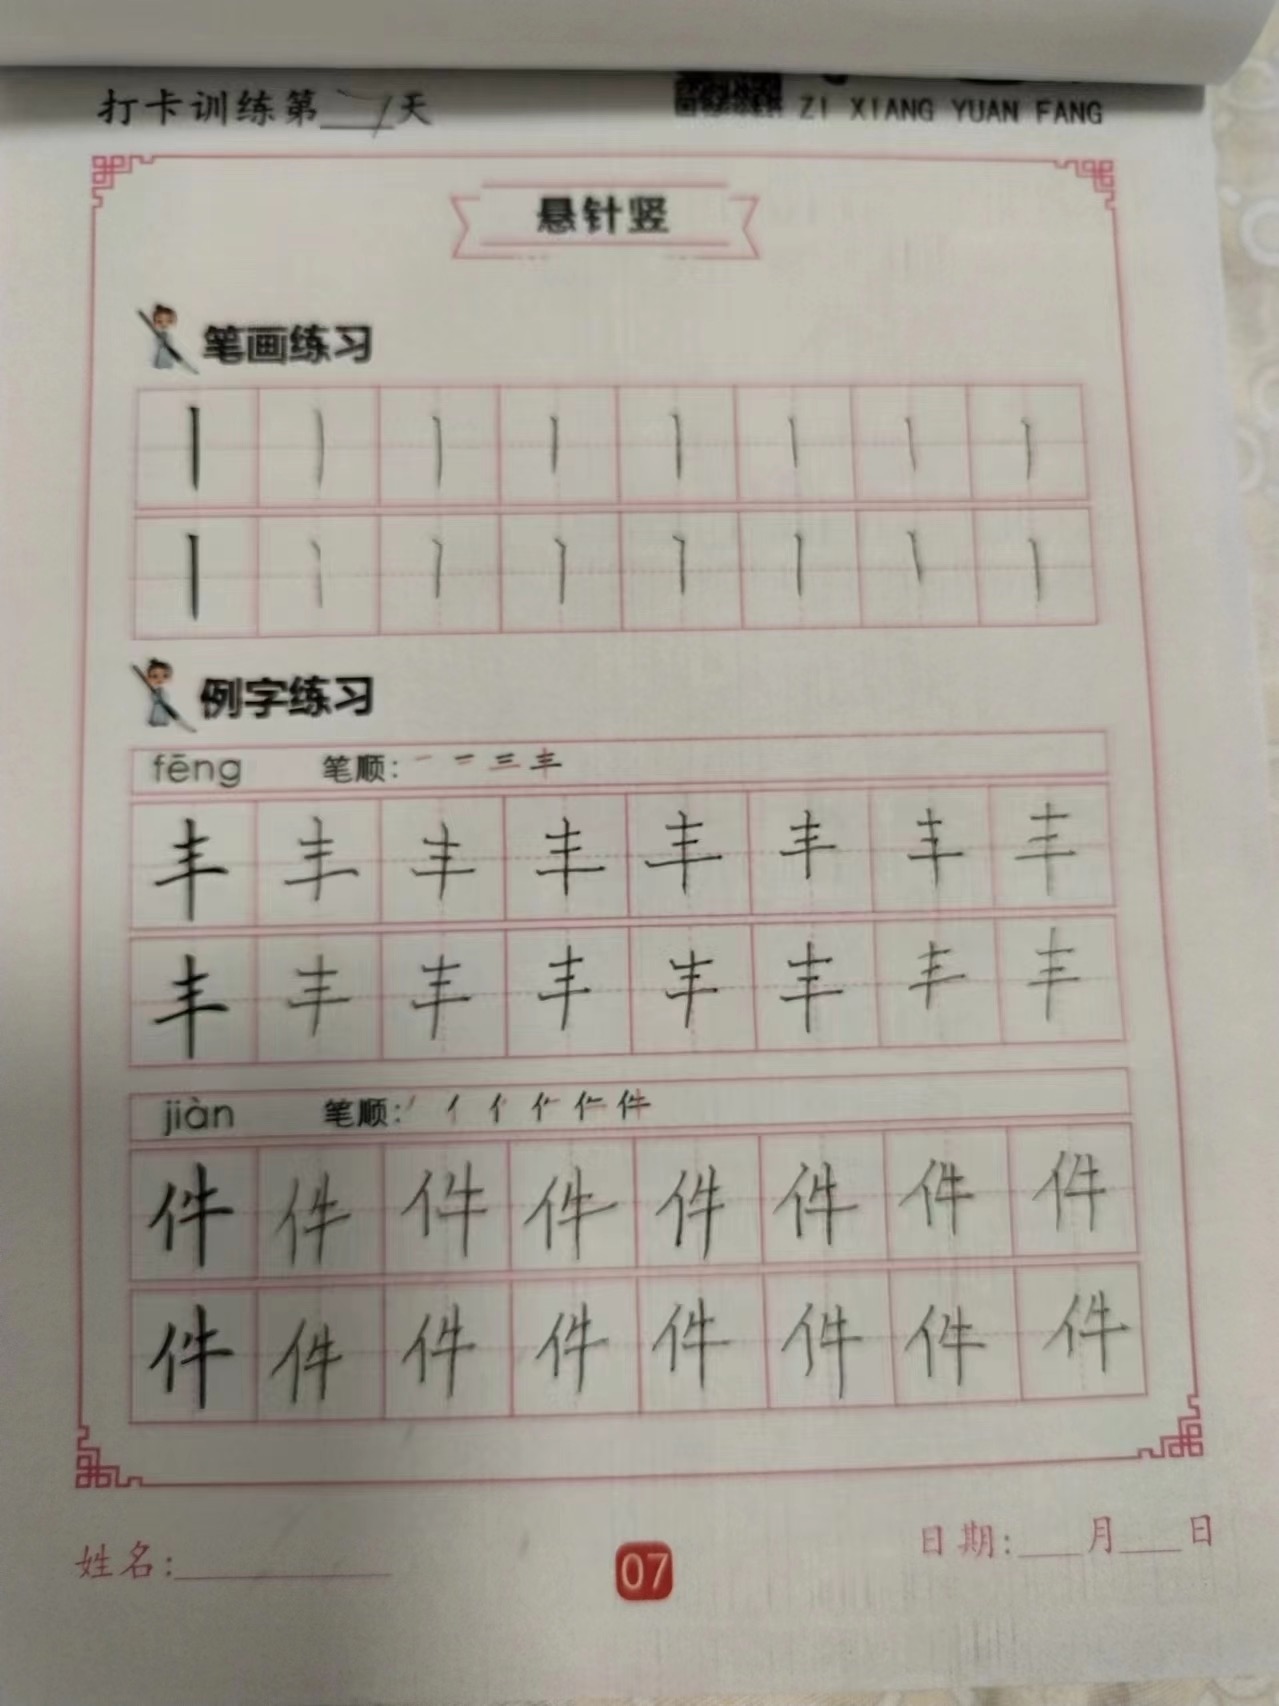 打卡训练第7天
ZI XIANG YUAN FANG
悬针竖
笔画练习
丨 丨 丨 丨 丨 丨 丨 丨
丨 丨 丨 丨 丨 丨 丨 丨
例字练习
fēng 笔顺: 一 二 三 丰
丰 丰 丰 丰 丰 丰 丰 丰
丰 丰 丰 丰 丰 丰 丰 丰
jiàn 笔顺: 丿 亻 件
件 件 件 件 件 件 件 件
件 件 件 件 件 件 件 件
姓名:
07
日期: 月 日